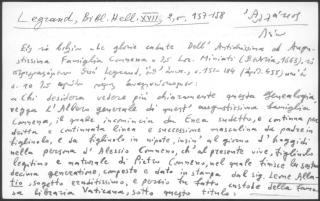 Legrand, Bibl. Hell. XVII, 1, σ. 157-158
Le glorie cadute Dell' Antichissima ed Augu-
stissima Famiglia Comnena (Venezia, 1663)
Legrand
« Chi desidera vedere più chiaramente questa Genealogia
vegga l'Albero generale di quest' augustissima famiglia
Comnena, il quale incomincia da Enea sudetto, e continua per
dritta e continuata linea e successione masculina da padre in
figliuolo, e da figliuolo in nipote, insin' al giorno d'hoggidì
nella persona d'Alessio Comneno, ch'al presente vive, figliuolo
legitimo e naturale di Pietro Comneno, nel quale finisce la
decima generatione, composto e dato in stampa dal sig. Leone Alla-
tio, sogetto eruditissimo, e perciò custode della famo-
sa libraria Vaticana, sotto questo titolo: